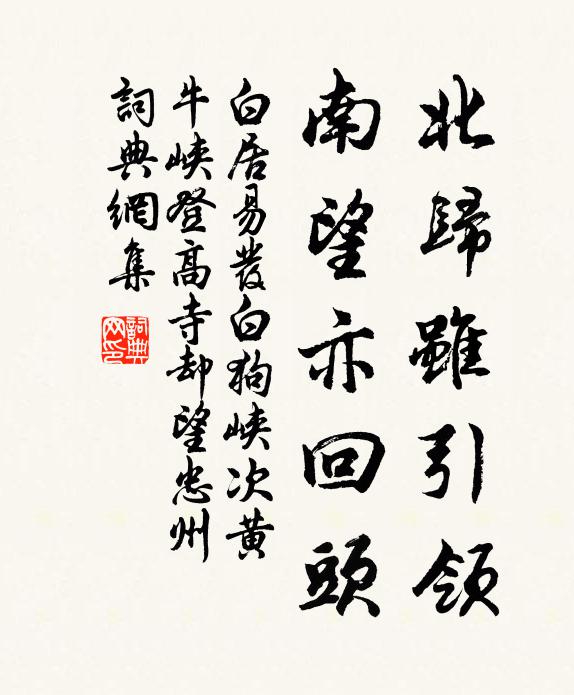 北歸雖引領
南望亦回頭
白居易發白狗峽次黃
牛峽登高寺却望忠州
詞典網集
詞典网印